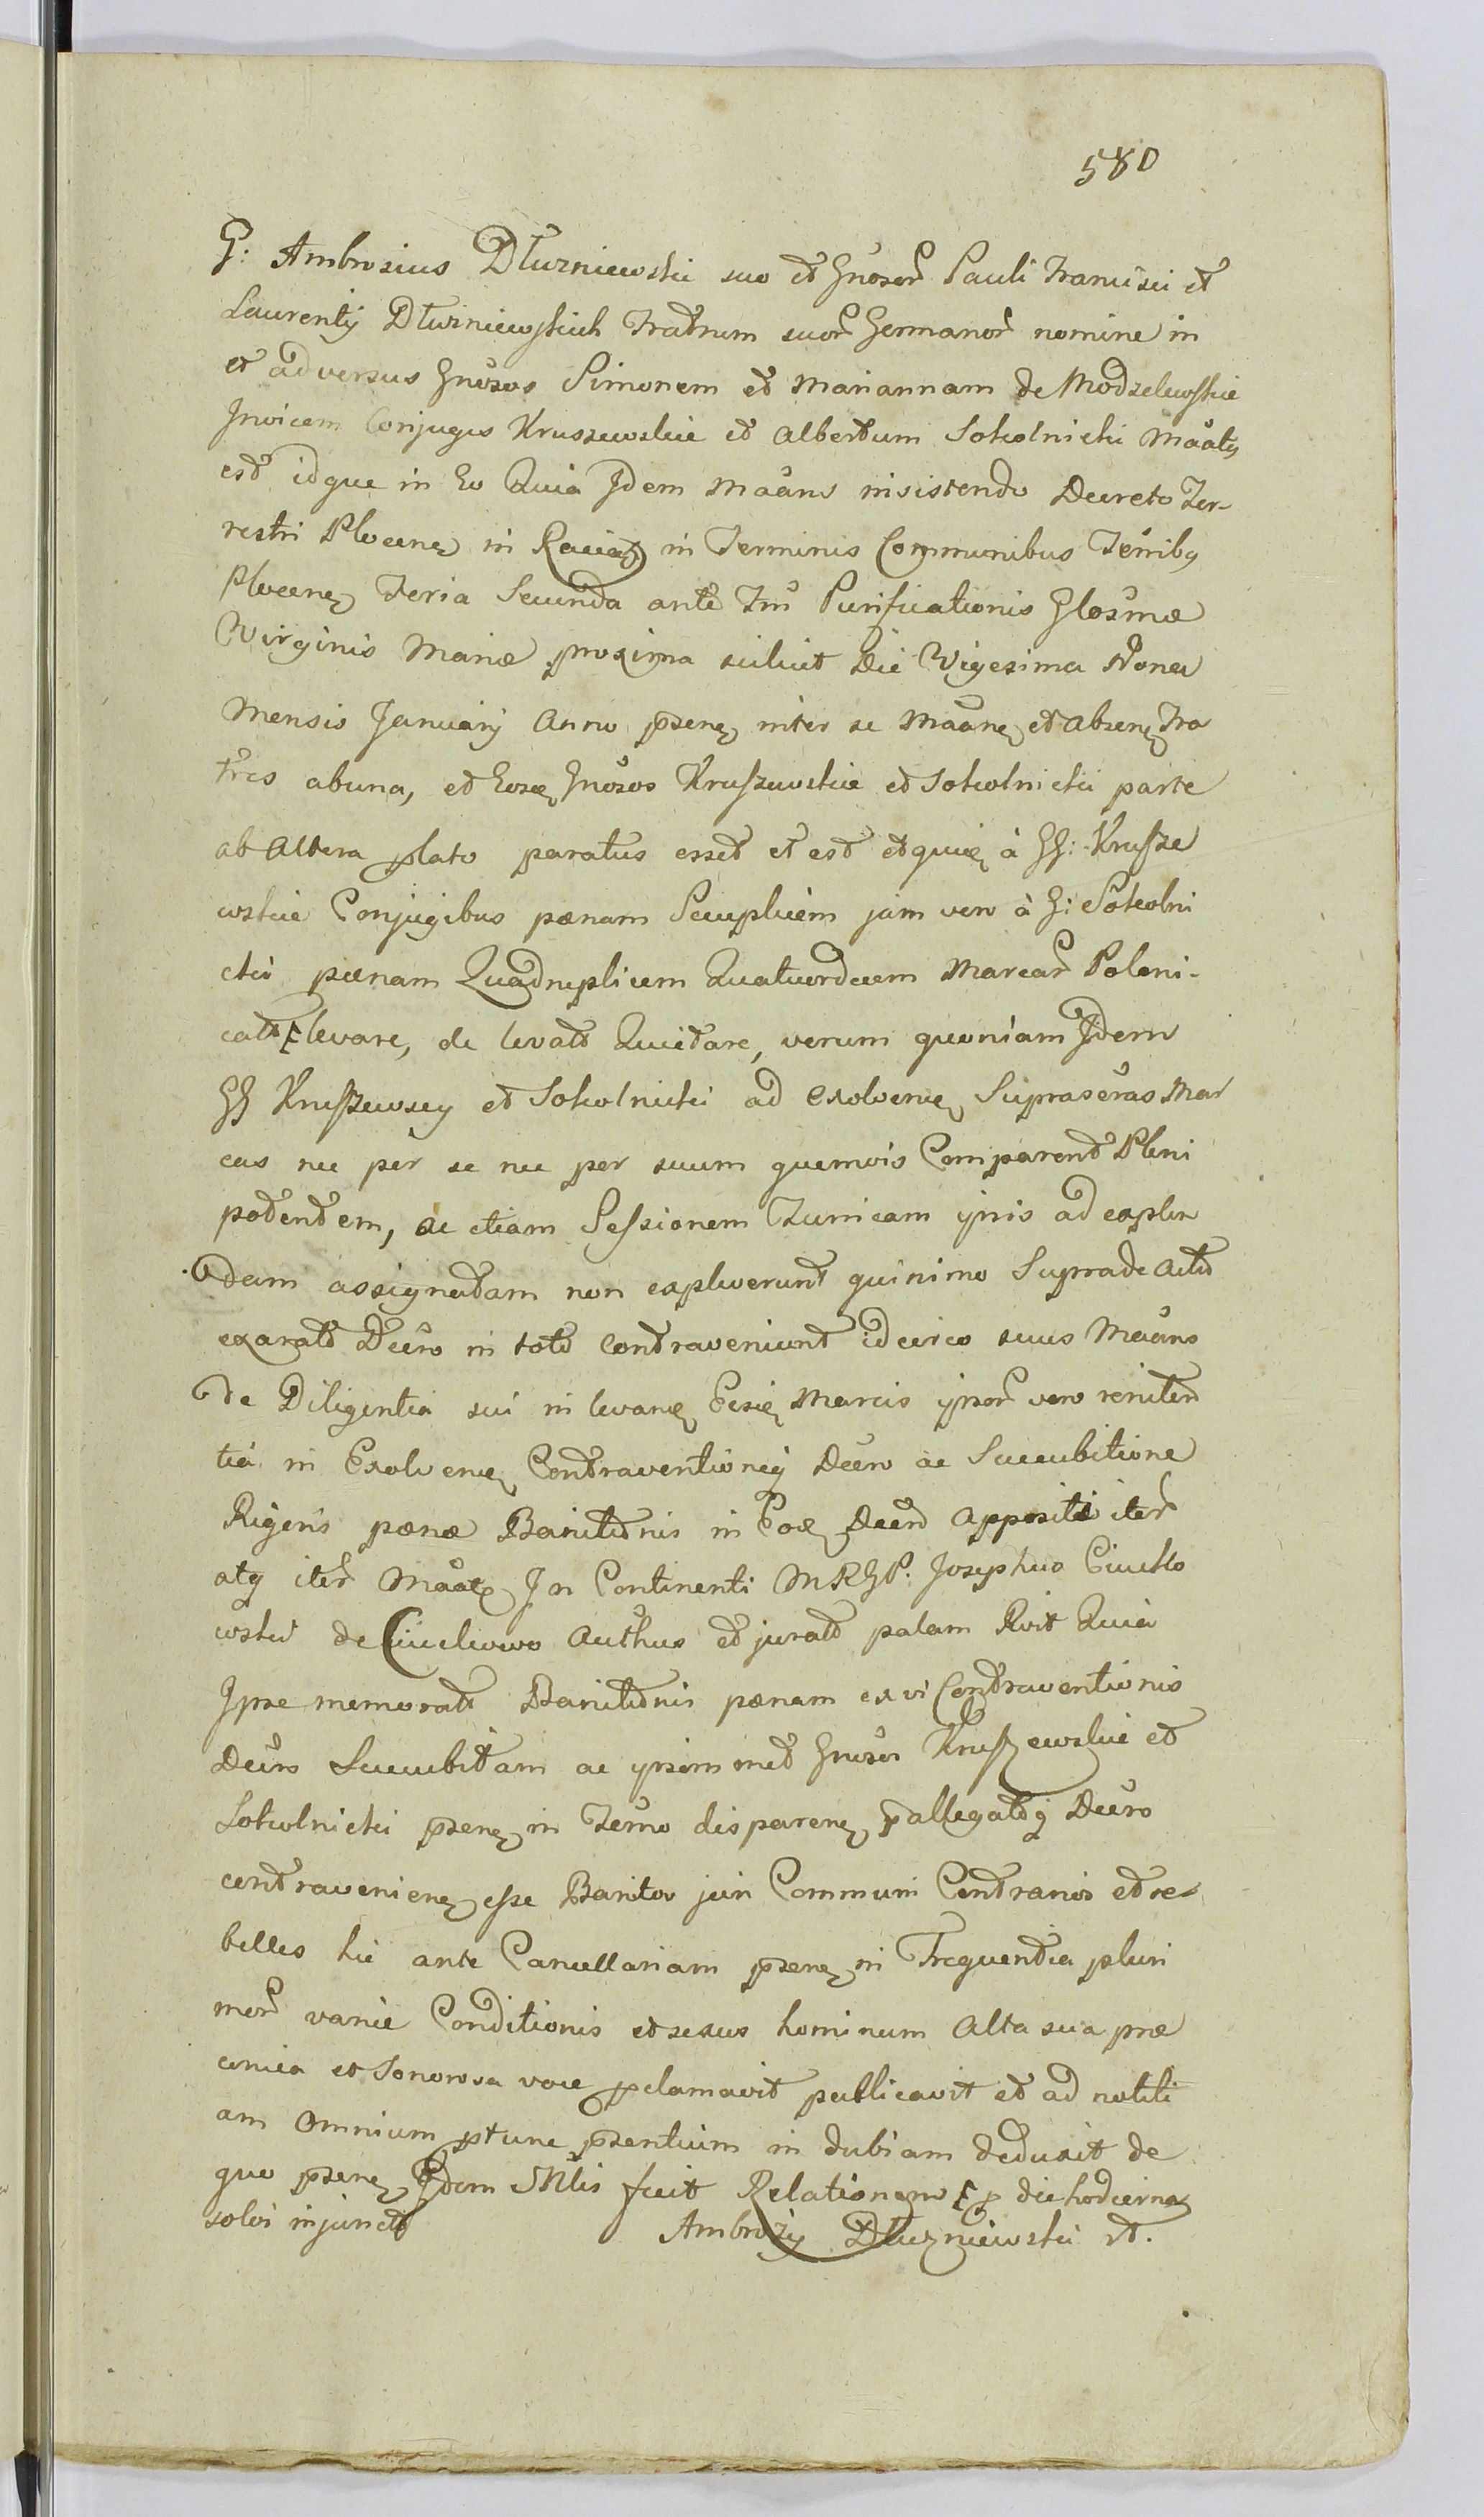 580
G: Ambrosius Dłuzniewski suo et Gnosor Pauli Francisci et
Laurentij Dłuzniewskich Fratrum suor Germanor nomine in
et adversus Gnosos Simonem et Mariannam de Modzelewskie
Invicem Conjuges Kruszewskie et Albertum Sokolnicki Maatg
est idque in Eo Quia Idem Maans insistendo Decreto Ter-
restri Plocen in Raciąz in Terminis Communibus Terribg
Plocen Feria Secunda ante Fm Purificationis Glosmæ
Virginis Mariæ proxima scilicet Die Vigesima Nona
Mensis Januarij Anno psen inter se Maan et absen Fra
tres abuna, et Eosd Gnosos Kruszewskie et Sokolnicki parte
ab Altera plato paratus esset et est et quid à GG: Krusze
wskie Conjugibus pænam Sexuplicem jam vero à G: Sokolni
cki pænam Quadruplicem Quatuordecem Marcar Poloni-
cat levare, de levat Quietare, verum quoniam Idem
GG Kruszewscy et Sokolnicki ad Exolvend Suprascras Mar
cas nec per se nec per suum quemvis Comparent Pleni
potentem, ac etiam Sessionem Turricam ipsis ad explen
dam assignatam non expleverunt quinimo Suprade Actu
exarato Decro in toto contraveniunt idcirco suus Maans
de Diligentia sui in levand Eisd Marcis ipsor vero reniten
tia in Exolvend Contraventioneg Decro ac Succubitione
Rigoris pænæ Banitionis in Eod Decro appositi iter
atq iter Maate In Continenti MRGP: Josephus Ciucko
wski de Ciuckowo Authus et jurat palam Rvit Quia
Ipse memorat Banitionis pænam ex vi Contraventionis
Decro Succubitam ac ipsosmet Gnosos Kruszewskie et
Sokolnicki psen in Termo disparen pallegatog Decro
contravenien esse Banitos juri Communi Contrarios et re-
belles hic ante Cancellariam psen in Frequentia pluri
mor varie Conditionis et sexus hominum Alta sua præ
conica et Sonorosa voce pclamavit publicavit et ad notiti
am omnium ptunc psentium in dubiam deduxit de
quo psen Idem Mlis fecit Relationem p die hodierna
solvi injunct Ambroży Dłuzniewski